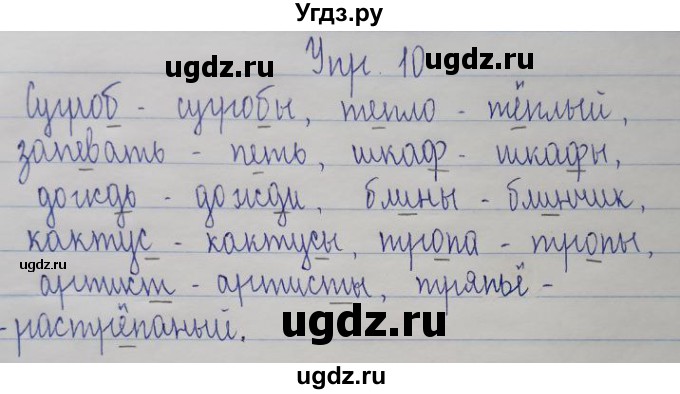 Угдз.ру
ugdz.ru ugdz.ru
Упр. 10
Сугроб - сугробы, тепло - тёплый,
запевать - петь, шкаф - шкафы,
дождь - дожди, блины - блинчик,
кактус - кактусы, тропа - тропы,
ugdz.ru
артист - артисты, тряпьё -
ugdz.ru
- растрёпаный.
ugdz.ru